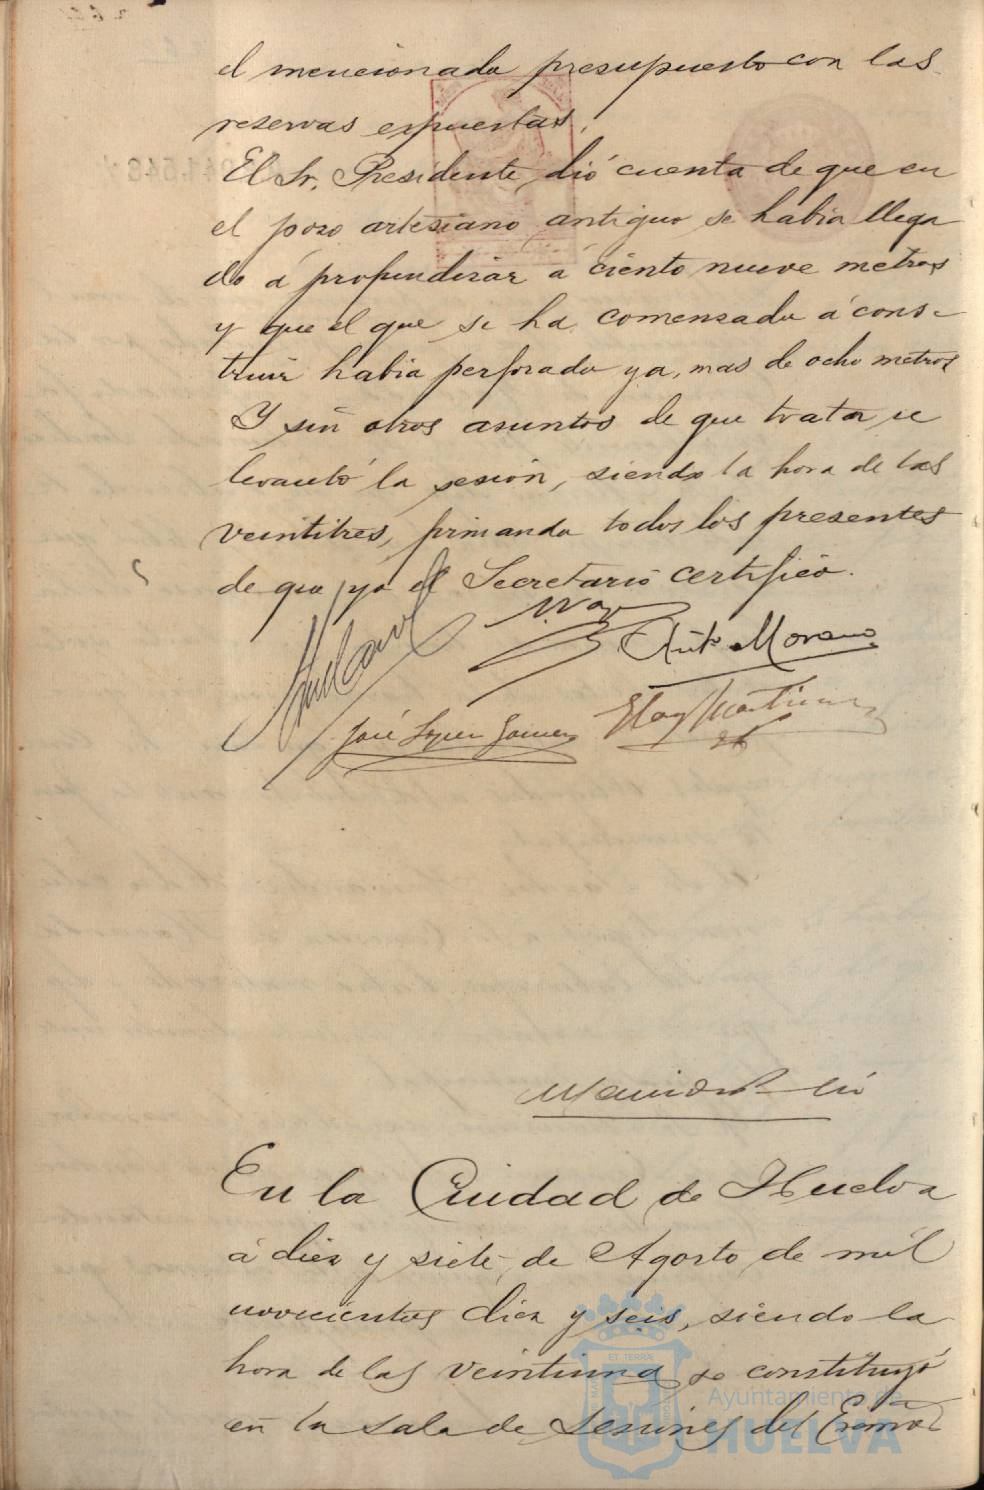 el mencionado presupuesto con las
reservas expuestas.
El Sr. Presidente, dió cuenta de que en
el pozo artesiano antiguo se habia llega
do á profundizar á ciento nueve metros
y que el que se ha comenzado á cons-
truir habia perforado ya, mas de ocho metros
Y sin otros asuntos de que tratar se
levantó la sesión, siendo la hora de las
veintitres, firmando todos los presentes
de que yo el Secretario certifico.
Antº Moreno
José López Gómez Eloy Martinez
En la Ciudad de Huelva
á diez y siete, de Agosto de mil
novecientos diez y seis, siendo la
hora de las veintiuna se constituyó
en la sala de Sesiones del Excmo
ET TERRÆ
Ayuntamiento de
HUELVA